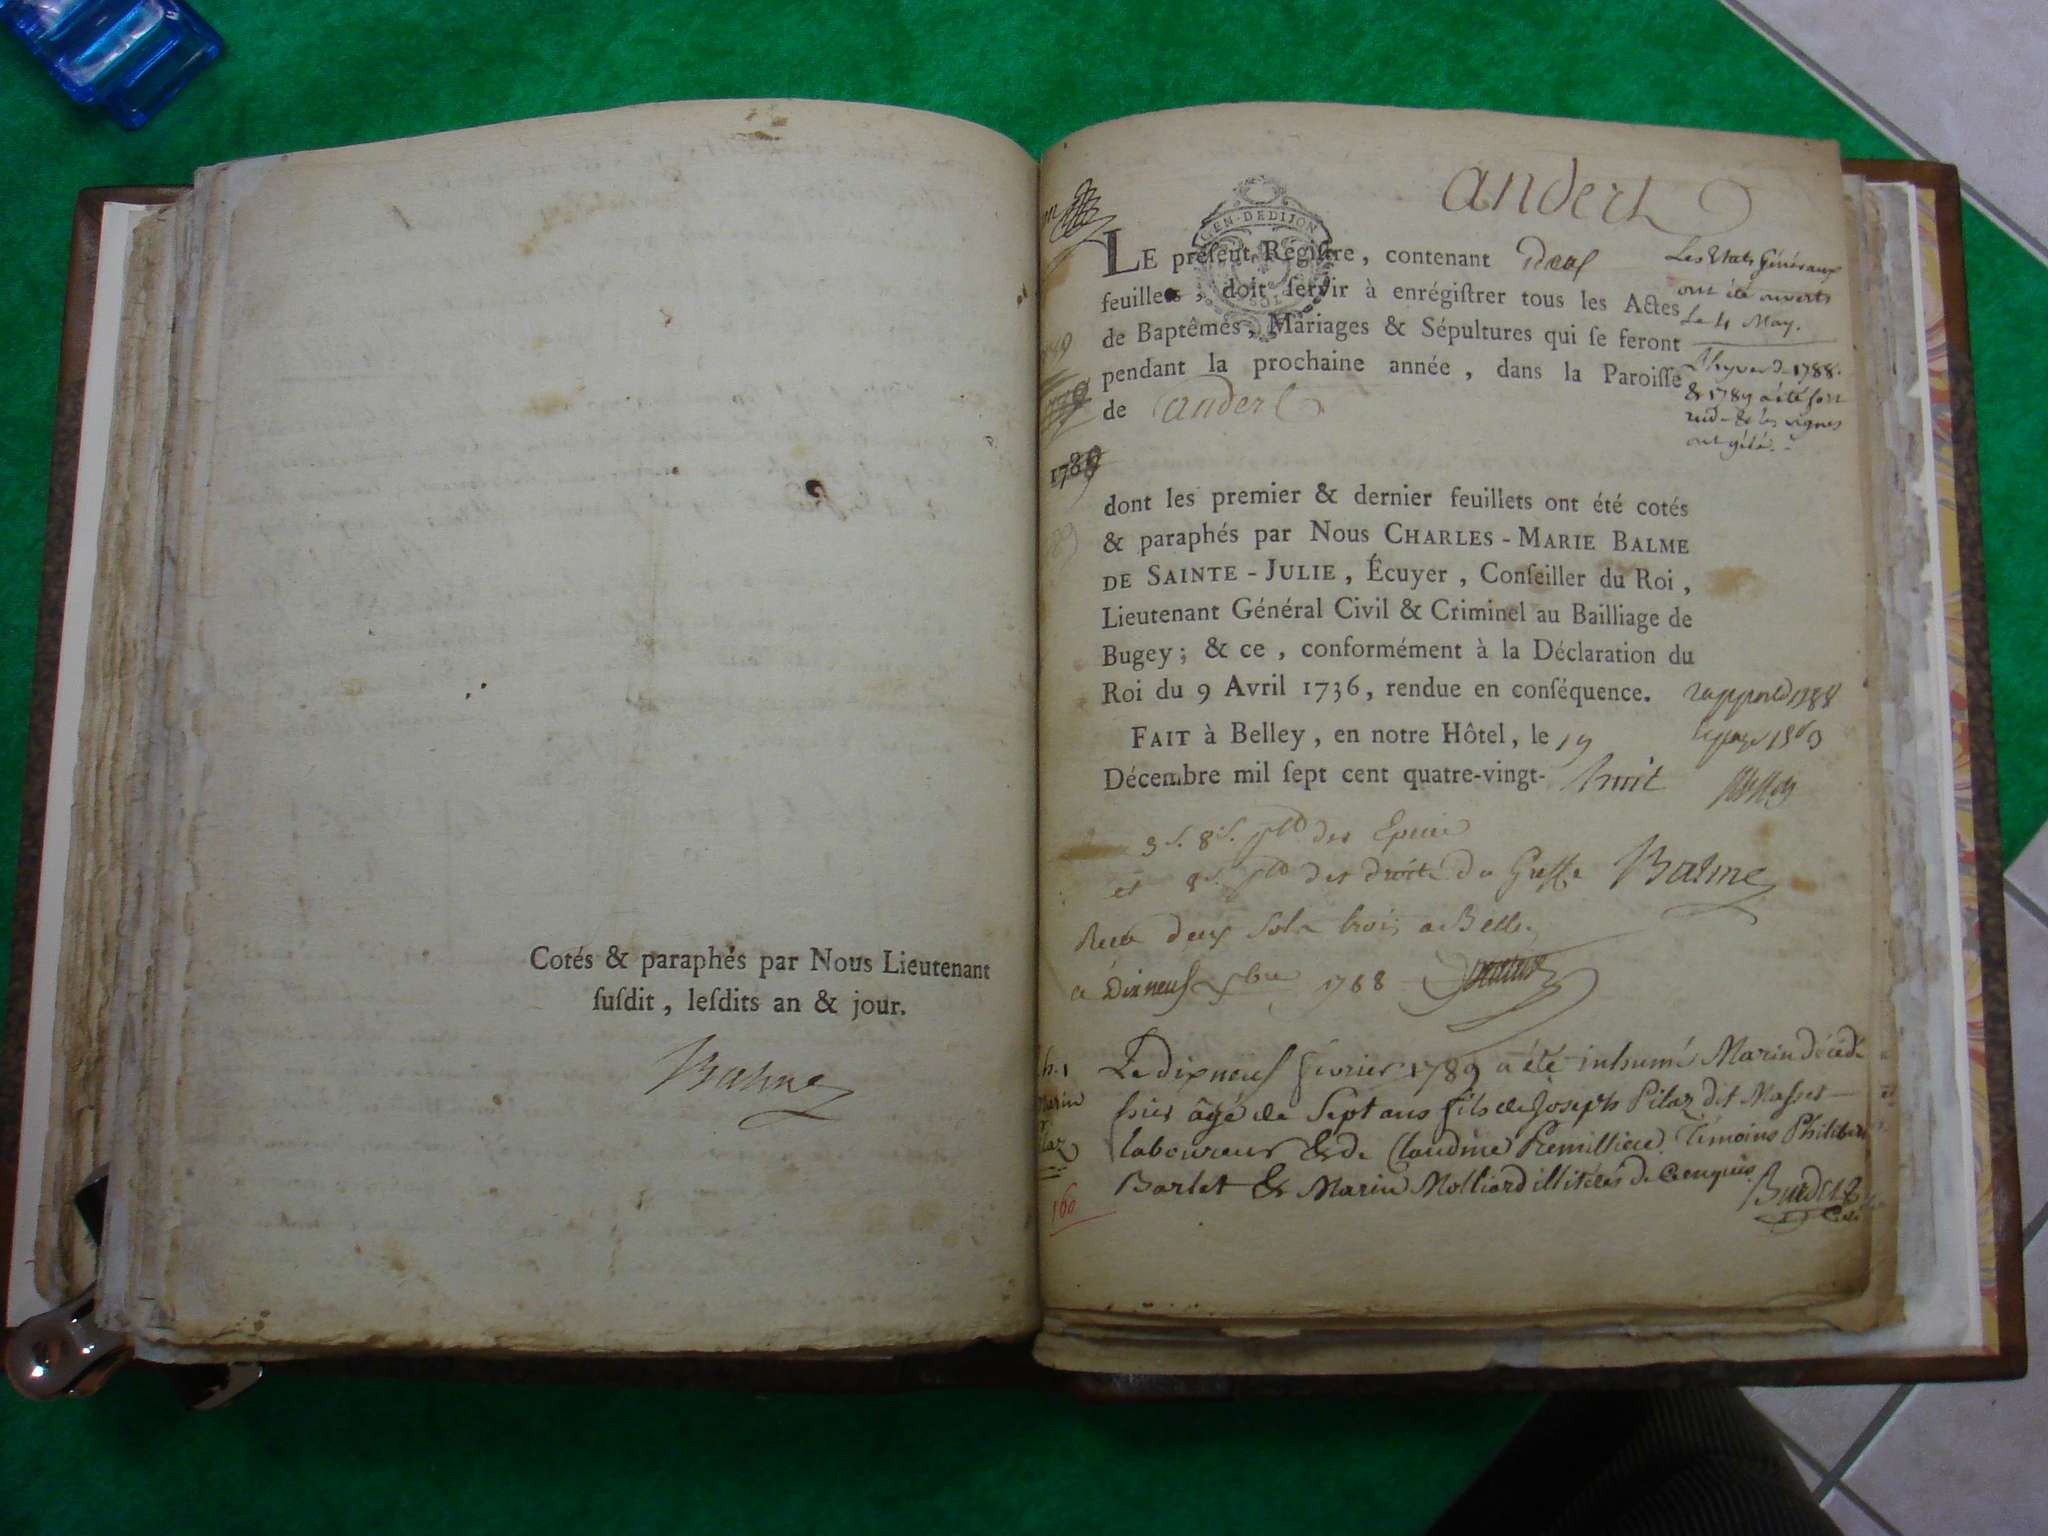 Cotés & paraphés par Nous Lieutenant
ſuſdit, leſdits an & jour.
Balme
andert
GEN·DEDIJON
LE préſent Regiſtre, contenant deux
feuillets, doit ſervir à enrégiſtrer tous les Actes
de Baptêmes, Mariages & Sépultures qui ſe feront
pendant la prochaine année, dans la Paroiſſe
de andert
Les Etats Généraux
ont été ouverts
Le 4 May.
L'hyver de 1788.
& 1789 a été fort
rud- & les vignes
ont gélé.
1789
dont les premier & dernier feuillets ont été cotés
& paraphés par Nous CHARLES-MARIE BALME
DE SAINTE-JULIE, Écuyer, Conſeiller du Roi,
Lieutenant Général Civil & Criminel au Bailliage de
Bugey; & ce, conformément à la Déclaration du
Roi du 9 Avril 1736, rendue en conſéquence.
FAIT à Belley, en notre Hôtel, le 19
Décembre mil ſept cent quatre-vingt- huit
3 s. 8 d. des Epices
et 8 s. des droits du Greffe Balme
Receu deux sols trois a Belley
a Dixneuf xbre 1788
Le dixneuf fevrier 1789 a été inhumé Marin décédé
hier âgé de Sept ans fils de Joseph Pilaz dit Masset
laboureur & de Claudine Remilliere. Témoins Philibert
Barlet & Marin Molliard illitérés de enquis
160